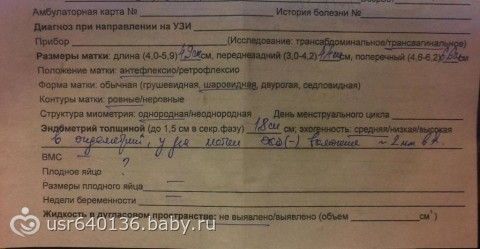 Амбулаторная карта № История болезни №
Диагноз при направлении на УЗИ
Прибор (Исследование: трансабдоминальное/трансвагинальное)
Размеры матки: длина (4,0-5,9) см, переднезадний (3,0-4,2) см, поперечный (4,6-6,2) см
Положение матки: антефлексио/ретрофлексио
Форма матки: обычная (грушевидная, шаровидная, двурогая, седловидная)
Контуры матки: ровные/неровные
Структура миометрия: однородная/неоднородная День менструального цикла
Эндометрий толщиной (до 1,5 см в секр.фазу) 1,8 см см; эхогенность: средняя/низкая/высокая
в эндометрии, у дна матки эхо(-) включение ~ 2 мм
ВМС
Плодное яйцо ?
Размеры плодного яйца —
Недели беременности —
Жидкость в дугласовом пространстве: не выявлено/выявлено (объем см³)
usr640136.baby.ru